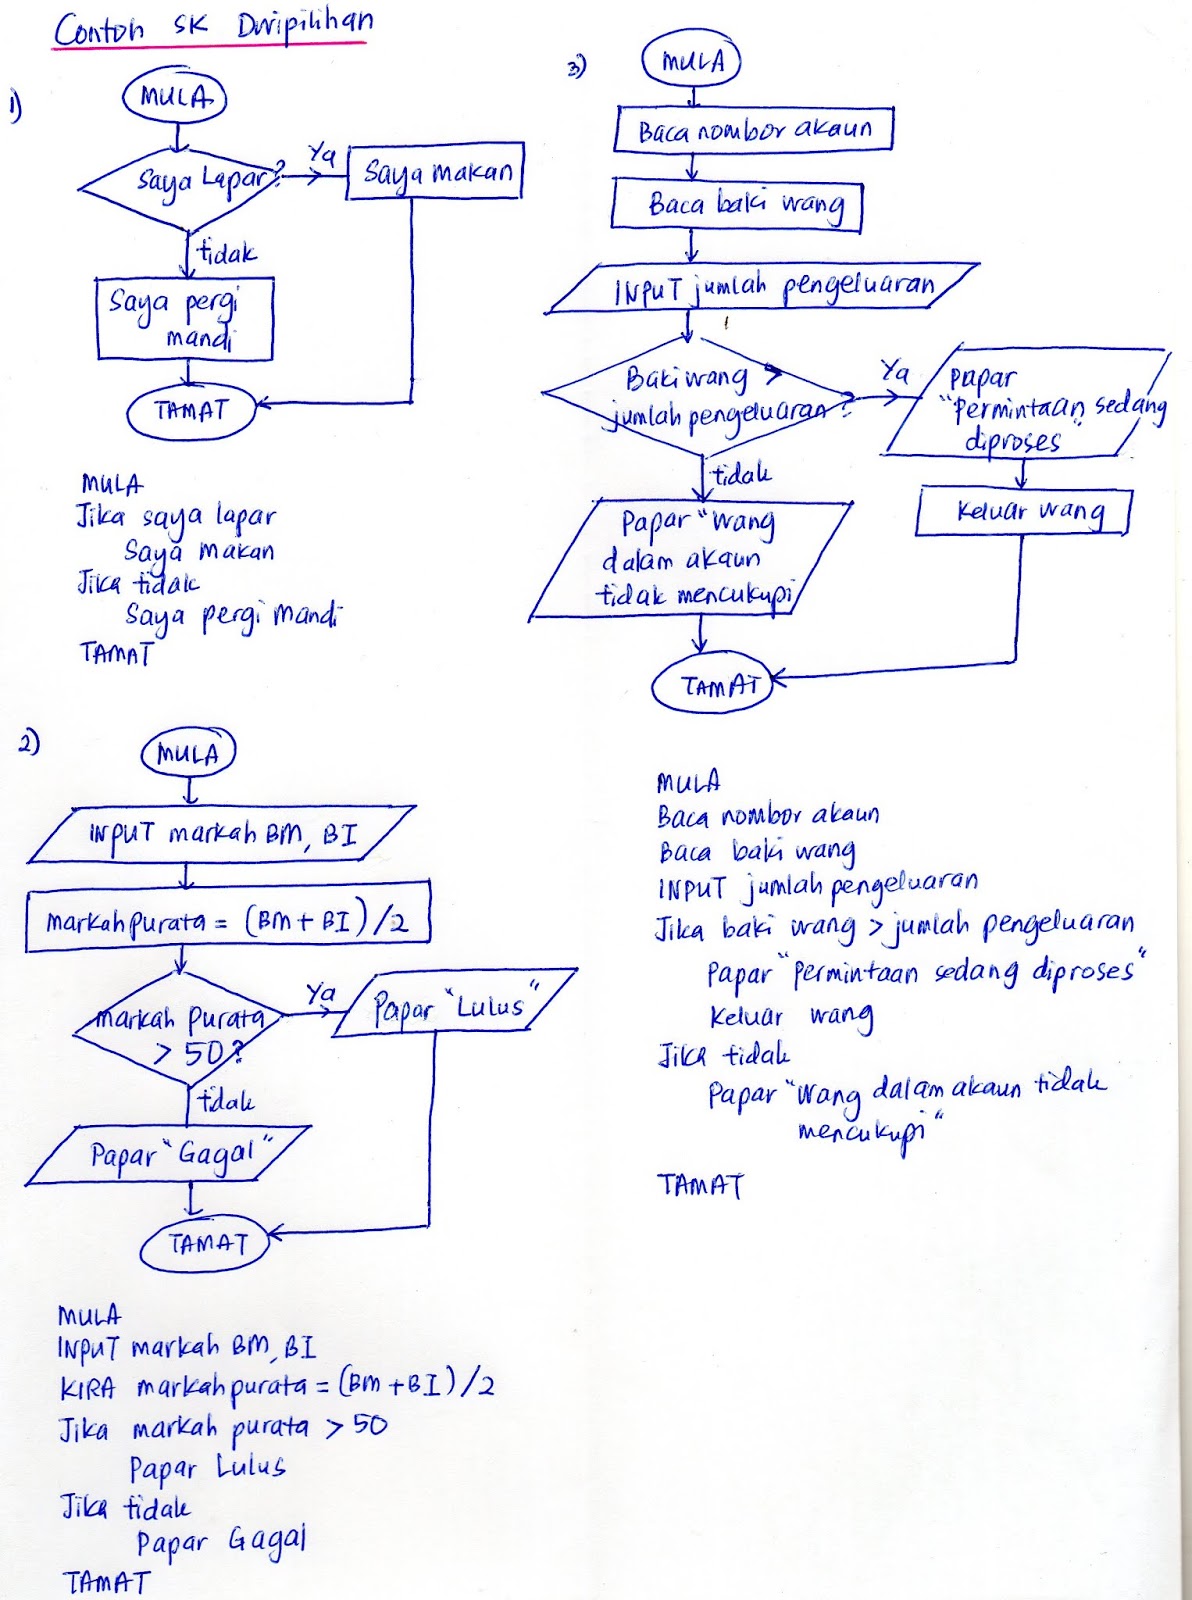 Contoh SK Dwipilihan
1)
MULA
Saya Lapar?
Ya
Saya makan
tidak
Saya pergi
mandi
TAMAT
MULA
Jika saya lapar
Saya makan
Jika tidak
Saya pergi mandi
TAMAT
2)
MULA
INPUT markah BM, BI
markahpurata = (BM + BI)/2
markah purata
> 50?
Ya
Papar "Lulus"
tidak
Papar "Gagal"
TAMAT
MULA
INPUT markah BM, BI
KIRA markahpurata = (BM + BI)/2
Jika markah purata > 50
Papar Lulus
Jika tidak
Papar Gagal
TAMAT
3)
MULA
Baca nombor akaun
Baca baki wang
INPUT jumlah pengeluaran
Baki wang >
jumlah pengeluaran?
Ya
Papar
"Permintaan sedang
diproses"
Keluar wang
tidak
Papar "Wang
dalam akaun
tidak mencukupi
TAMAT
MULA
Baca nombor akaun
Baca baki wang
INPUT jumlah pengeluaran
Jika baki wang > jumlah pengeluaran
Papar "Permintaan sedang diproses"
Keluar wang
Jika tidak
Papar "Wang dalam akaun tidak
mencukupi"
TAMAT